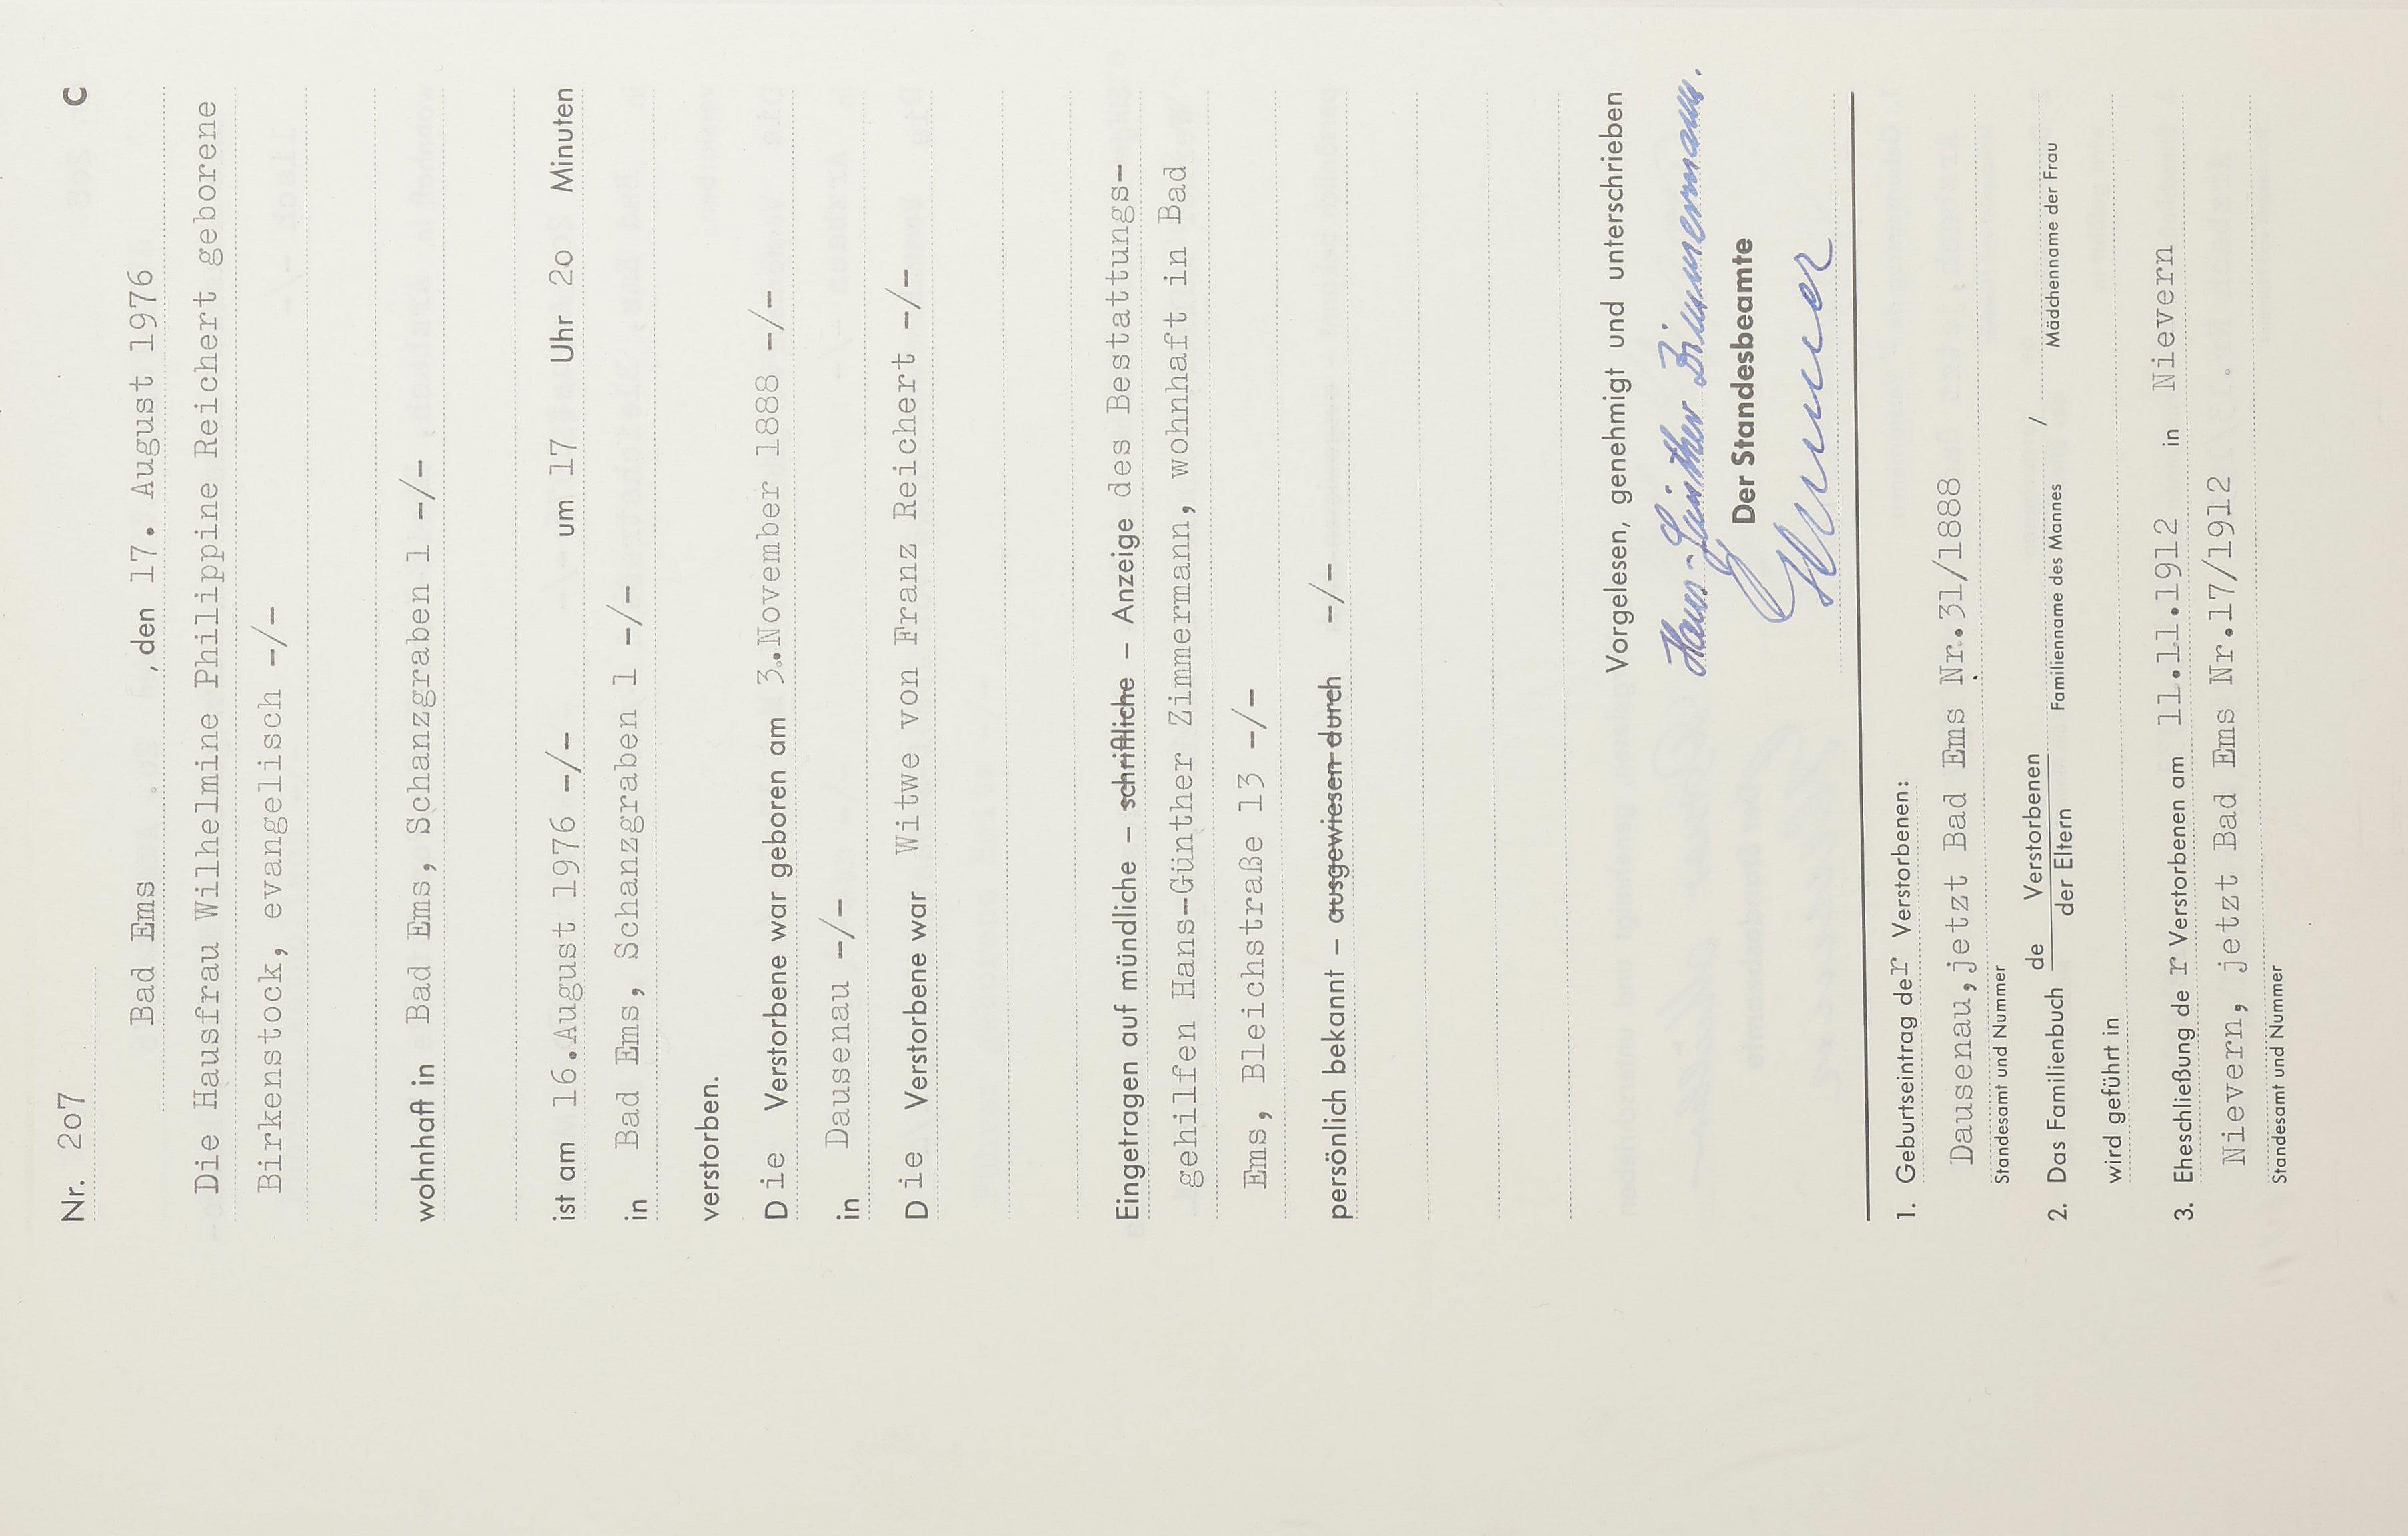 Nr. 2o7 C
Bad Ems , den 17. August 1976
Die Hausfrau Wilhelmine Philippine Reichert geborene
Birkenstock, evangelisch -/-
wohnhaft in Bad Ems, Schanzgraben 1 -/-
ist am 16.August 1976 -/- um 17 Uhr 2o Minuten
in Bad Ems, Schanzgraben 1 -/-
verstorben.
Die Verstorbene war geboren am 3.November 1888 -/-
in Dausenau -/-
Die Verstorbene war Witwe von Franz Reichert -/-
Eingetragen auf mündliche – schriftliche – Anzeige des Bestattungs-
gehilfen Hans-Günther Zimmermann, wohnhaft in Bad
Ems, Bleichstraße 13 -/-
persönlich bekannt – ausgewiesen durch -/-
Vorgelesen, genehmigt und unterschrieben
Hans-Günther Zimmermann.
Der Standesbeamte
1. Geburtseintrag der Verstorbenen:
Dausenau,jetzt Bad Ems Nr.31/1888
Standesamt und Nummer
2. Das Familienbuch de Verstorbenen / 
der Eltern Familienname des Mannes Mädchenname der Frau
wird geführt in
3. Eheschließung de r Verstorbenen am 11.11.1912 in Nievern
Nievern, jetzt Bad Ems Nr.17/1912
Standesamt und Nummer